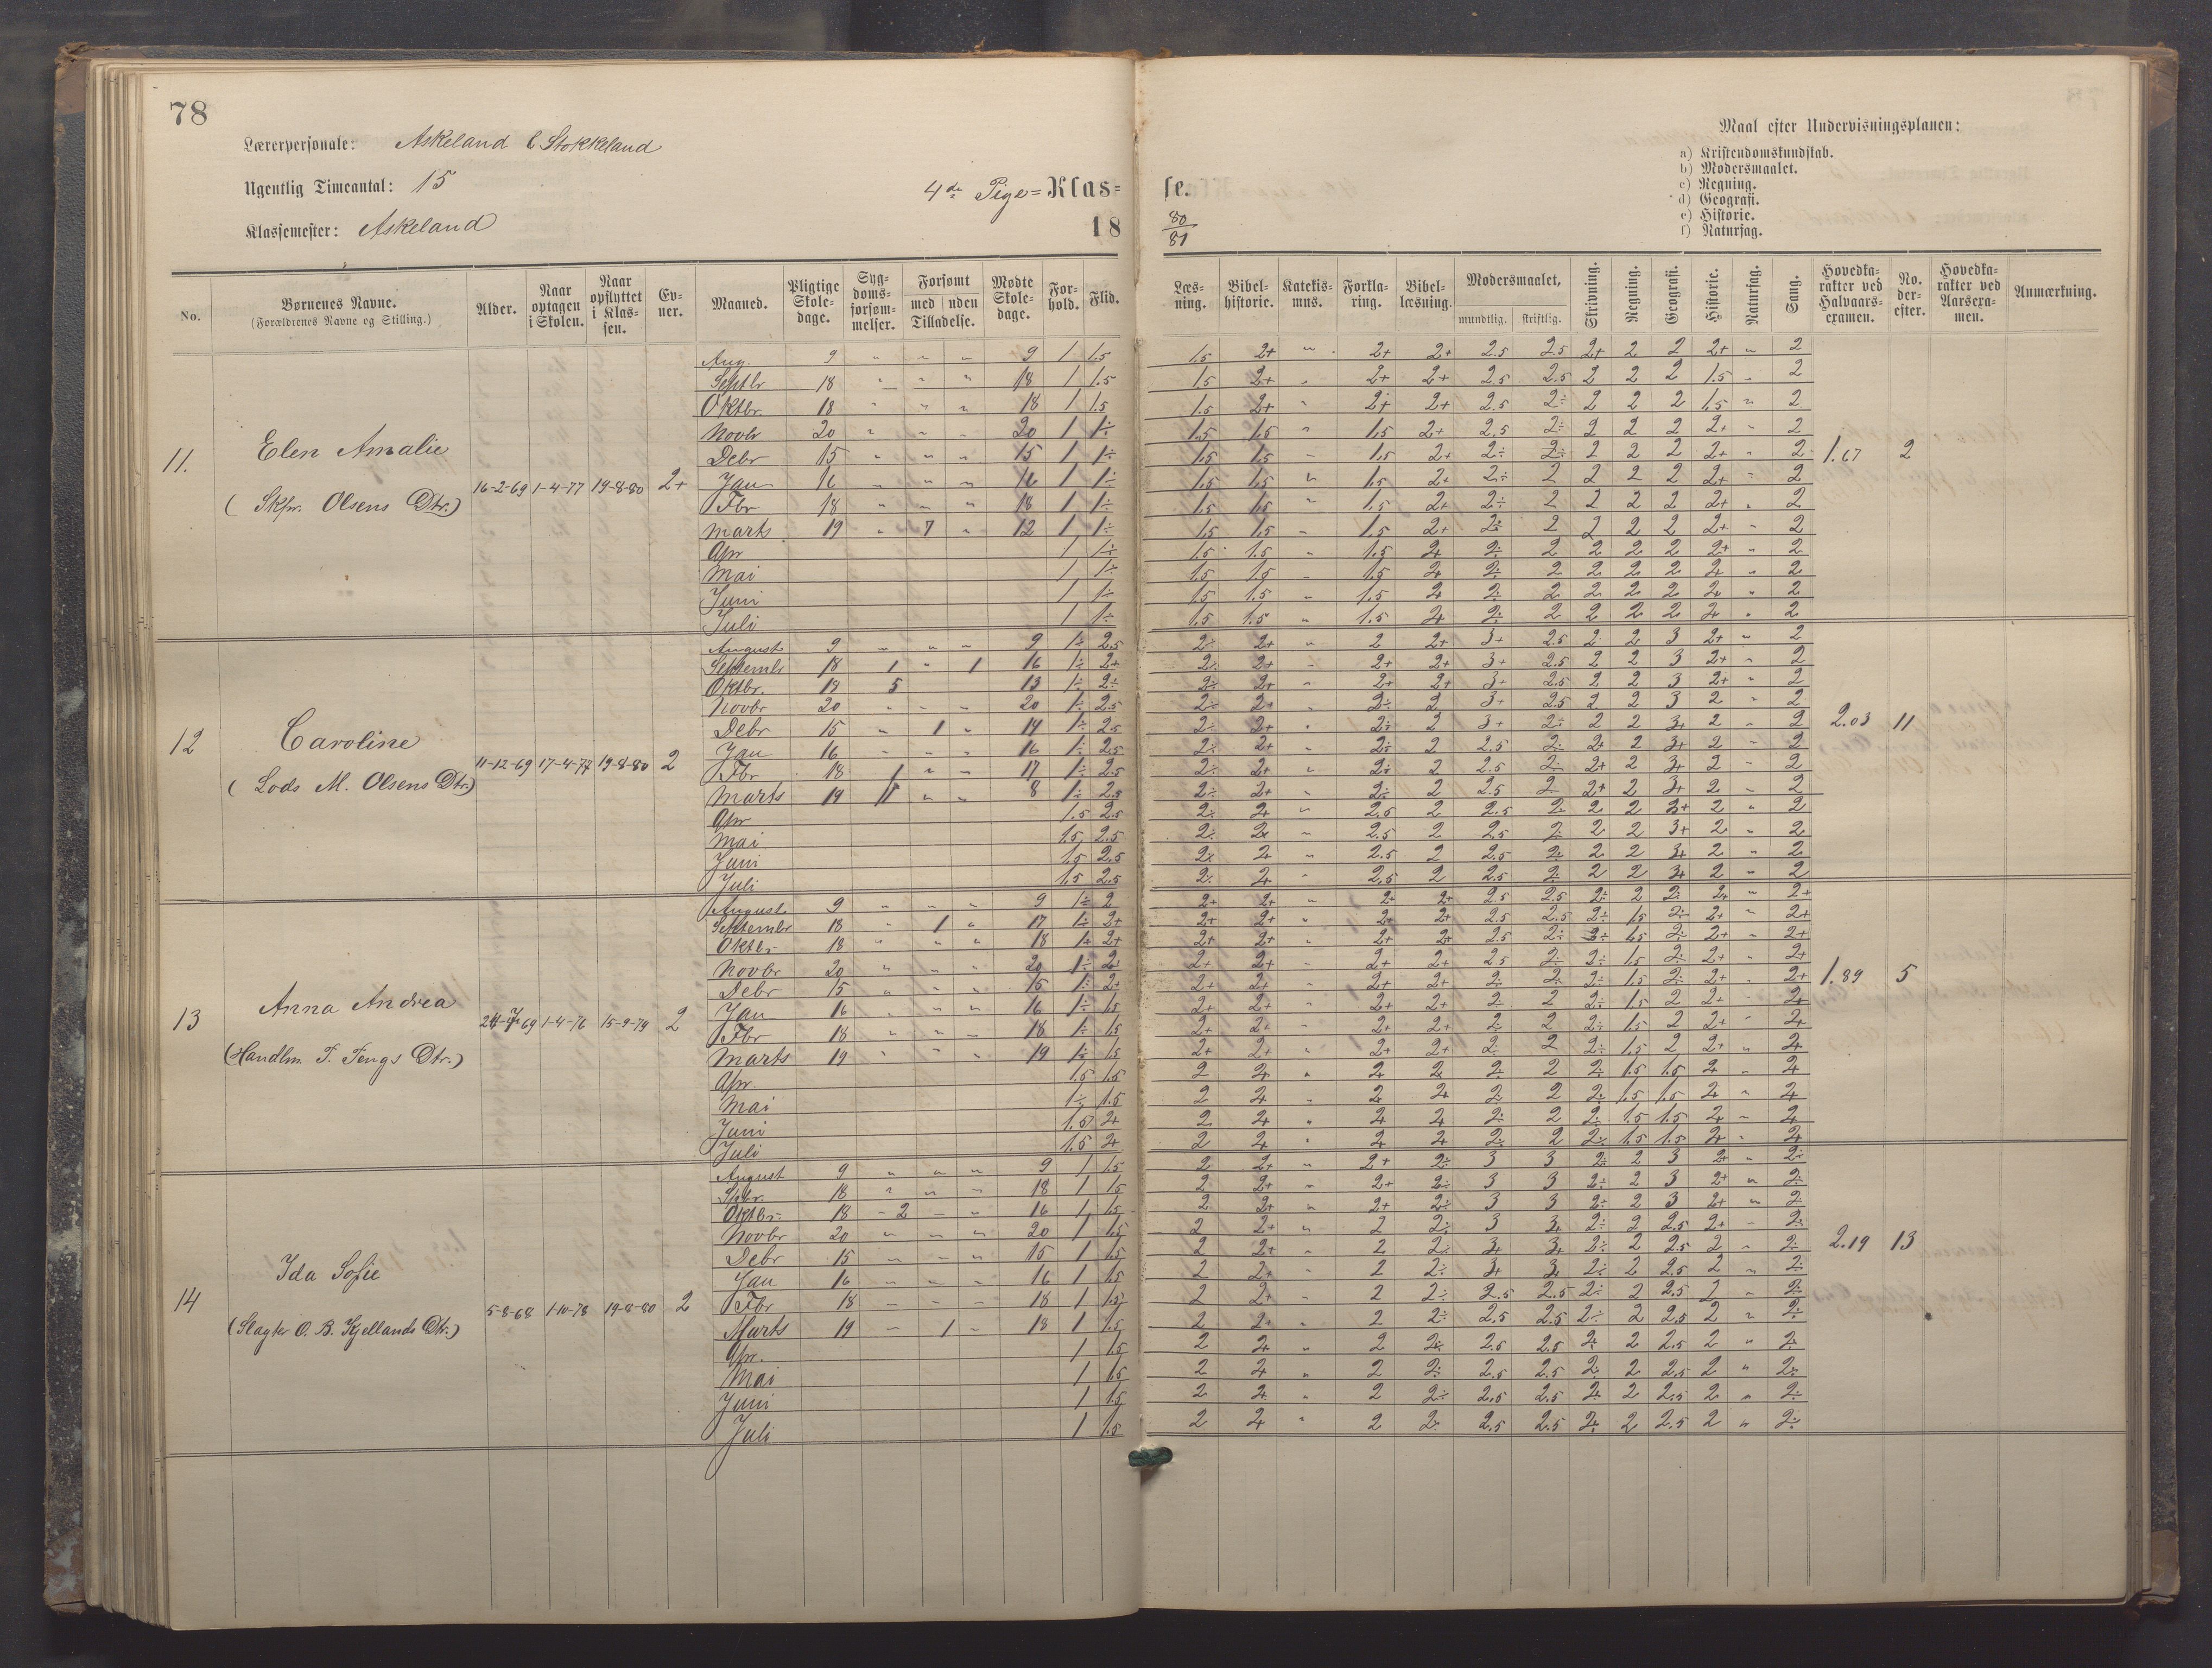 78
Lærerpersonale: Askeland & Stokkeland
Ugentlig Timeantal: 15
4de Pige= Klas= se.
Klassemester: Askeland
18 80/81
Maal efter Undervisningsplanen:
a) Kristendomskundskab.
b) Modersmaalet.
c) Regning.
d) Geografi.
e) Historie.
f) Natursag.
No. | Børnenes Navne. (Forældrenes Navne og Stilling.) | Alder. | Naar optagen i Skolen. | Naar opflyttet i Klassen. | Evner. | Maaned. | Pligtige Skoledage. | Sygdomsforsømmelser. | Forsømt med uden Tilladelse. | Mødte Skoledage. | Forhold. | Flid. | Læsning. | Bibelhistorie. | Katekismus. | Forklaring. | Bibellæsning. | Modersmaalet, mundtlig. skriftlig. | Skrivning. | Regning. | Geografi. | Historie. | Natursag. | Sang. | Hovedkarakter ved Halvaarsexamen. | No. derefter. | Hovedkarakter ved Aarsexamen. | Anmærkning.
11. Elen Amalie
(Skpr. Olsens Dtr.) 16-2-69 1-4-77 19-8-80 2+ 1.67 2
Aug. 9 " " " 9 1 1.5 1.5 2+ " 2+ 2+ 2.5 2.5 2+ 2 2 2+ " 2
Septbr 18 " " " 18 1 1.5 1.5 2+ " 2+ 2+ 2.5 2.5 2 2 2 1.5 " 2
Oktbr. 18 " " " 18 1 1.5 1.5 2+ " 2+ 2+ 2.5 2÷ 2 2 2 1.5 " 2
Novbr 20 " " " 20 1 1÷ 1.5 1.5 " 1.5 2+ 2.5 2÷ 2 2 2 2+ " 2
Debr 15 " " " 15 1 1÷ 1.5 1.5 " 1.5 2+ 2÷ 2÷ 2 2 2 2+ " 2
Jan 16 " " " 16 1 1÷ 1.5 1.5 " 1.5 2+ 2÷ 2 2 2 2 2+ " 2
Fbr 18 " " " 18 1 1÷ 1.5 1.5 " 1.5 2+ 2÷ 2 2 2 2 2+ " 2
Marts 19 " 7 " 12 1 1÷ 1.5 1.5 " 1.5 2+ 2÷ 2 2 2 2 2+ " 2
Apr 1 1÷ 1.5 1.5 " 1.5 2+ 2÷ 2 2 2 2 2+ " 2
Mai 1 1÷ 1.5 1.5 " 1.5 2+ 2÷ 2 2 2 2 2+ " 2
Juni 1 1÷ 1.5 1.5 " 1.5 2+ 2÷ 2 2 2 2 2+ " 2
Juli 1 1÷ 1.5 1.5 " 1.5 2+ 2÷ 2 2 2 2 2+ " 2
12 Caroline
(Lods M. Olsens Dtr.) 11-12-69 17-4-77 19-8-80 2 2.03 11
August 9 " " " 9 1÷ 2.5 2÷ 2+ " 2 2+ 3+ 2.5 2 2 3 2+ " 2
Septembr 18 1 " 1 16 1÷ 2+ 2÷ 2+ " 2+ 2+ 3+ 2.5 2 2 3 2+ " 2
Oktbr. 18 5 13 1÷ 2÷ 2÷ 2+ " 2+ 2+ 3+ 2.5 2 2 3 2+ " 2
Novbr 20 " " " 20 1÷ 2.5 2÷ 2+ " 2÷ 2 3+ 2.5 2 2 3 2 " 2
Debr 15 " 1 " 14 1÷ 2.5 2÷ 2+ " 2÷ 2 3+ 2÷ 2 2 3+ 2 " 2
Jan 16 " " " 16 1÷ 2.5 2÷ 2+ " 2÷ 2 2.5 2÷ 2+ 2 3+ 2 " 2
Fbr 18 1 " " 17 1÷ 2.5 2÷ 2+ " 2÷ 2 2.5 2÷ 2+ 2 3+ 2 " 2
Marts 19 11 " " 8 1÷ 2.5 2÷ 2+ " 2÷ 2 2.5 2÷ 2+ 2 3+ 2 " 2
Apr 1.5 2.5 2÷ 2+ " 2.5 2 2.5 2÷ 2 2 3+ 2 " 2
Mai 1.5 2.5 2÷ 2+ " 2.5 2 2.5 2÷ 2 2 3+ 2 " 2
Juni 1.5 2.5 2÷ 2+ " 2.5 2 2.5 2÷ 2 2 3+ 2 " 2
Juli 1.5 2.5 2÷ 2+ " 2.5 2 2.5 2÷ 2 2 3+ 2 " 2
13 Anna Andrea
(Handlm. T. Tengs Dtr.) 1-4-76 15-9-79 2 1.89 5
August 9 " " " 9 1÷ 2 2+ 2+ " 2+ 2+ 2.5 2.5 2÷ 2 2÷ 2+ " 2+
Septembr 18 " 1 " 17 1÷ 2+ 2+ 2+ " 2+ 2+ 2.5 2.5 2÷ 1.5 2÷ 2+ " 2+
Oktbr 18 " " " 18 1+ 2+ 2+ 2+ " 2+ 2+ 2.5 2÷ 2÷ 1.5 2÷ 2+ " 2+
Novbr 20 " " " 20 1÷ 2+ 2+ 2+ " 2+ 2+ 2.5 2÷ 2÷ 1.5 2÷ 2+ " 2+
Debr 15 " " " 15 1÷ 2+ 2+ 2+ " 2+ 2+ 2÷ 2÷ 2÷ 1.5 2÷ 2+ " 2+
Jan 16 " " " 16 1÷ 1.5 2+ 2+ " 2+ 2+ 2÷ 2 2÷ 1.5 2 2+ " 2+
Fbr 18 " " " 18 1÷ 1.5 2+ 2+ " 2+ 2+ 2÷ 2 2÷ 1.5 2 2+ " 2+
Marts 19 " " " 19 1÷ 1.5 2+ 2+ " 2+ 2+ 2÷ 2 2÷ 1.5 2 2+ " 2+
Apr. 1.5 1.5 2 2+ " 2+ 2+ 2÷ 2 2÷ 1.5 1.5 2+ " 2+
Mai 1÷ 1.5 2 2+ " 2+ 2+ 2÷ 2 2÷ 1.5 1.5 2+ " 2+
Juni 1.5 2+ 2 2+ " 2+ 2+ 2÷ 2 2÷ 1.5 1.5 2+ " 2+
Juli 1.5 2+ 2 2+ " 2+ 2+ 2÷ 2 2÷ 1.5 1.5 2+ " 2+
14 Ida Sofie
(Slagter O. B. Kjellands Dtr.) 5-8-68 1-10-78 19-8-80 2 2.19 13
August 9 " " " 9 1 1.5 2 2+ " 2+ 2÷ 3 3 2÷ 2 3 2+ " 2÷
Spbr. 18 " " " 18 1 1.5 2 2+ " 2+ 2÷ 3 3 2÷ 2 3 2+ " 2÷
Oktbr. 18 " 2 " " 16 1 1.5 2 2+ " 2+ 2÷ 3 3 2÷ 2 3 2+ " 2÷
Novbr 20 " " " 20 1 1.5 2 2+ " 2 2÷ 3 3+ 2÷ 2 2.5 2+ " 2÷
Debr 15 " " " 15 1 1.5 2 2+ " 2 2÷ 3+ 3+ 2÷ 2 2.5 2 " 2÷
Jan 16 " " " 16 1 1.5 2 2+ " 2 2÷ 3+ 3+ 2÷ 2 2.5 2 " 2÷
Fbr 18 " " " 18 1 1.5 2 2+ " 2 2÷ 2.5 2.5 2÷ 2 2.5 2 " 2÷
Marts 19 " 1 " 18 1 1.5 2 2+ " 2 2÷ 2.5 2.5 2÷ 2 2.5 2 " 2÷
Apr. 1 1.5 2 2+ " 2 2÷ 2.5 2.5 2÷ 2 2.5 2 " 2÷
Mai 1 1.5 2 2+ " 2 2÷ 2.5 2.5 2÷ 2 2.5 2 " 2÷
Juni 1 1.5 2 2+ " 2 2÷ 2.5 2.5 2÷ 2 2.5 2 " 2÷
Juli 1 1.5 2 2+ " 2 2÷ 2.5 2.5 2÷ 2 2.5 2 " 2÷